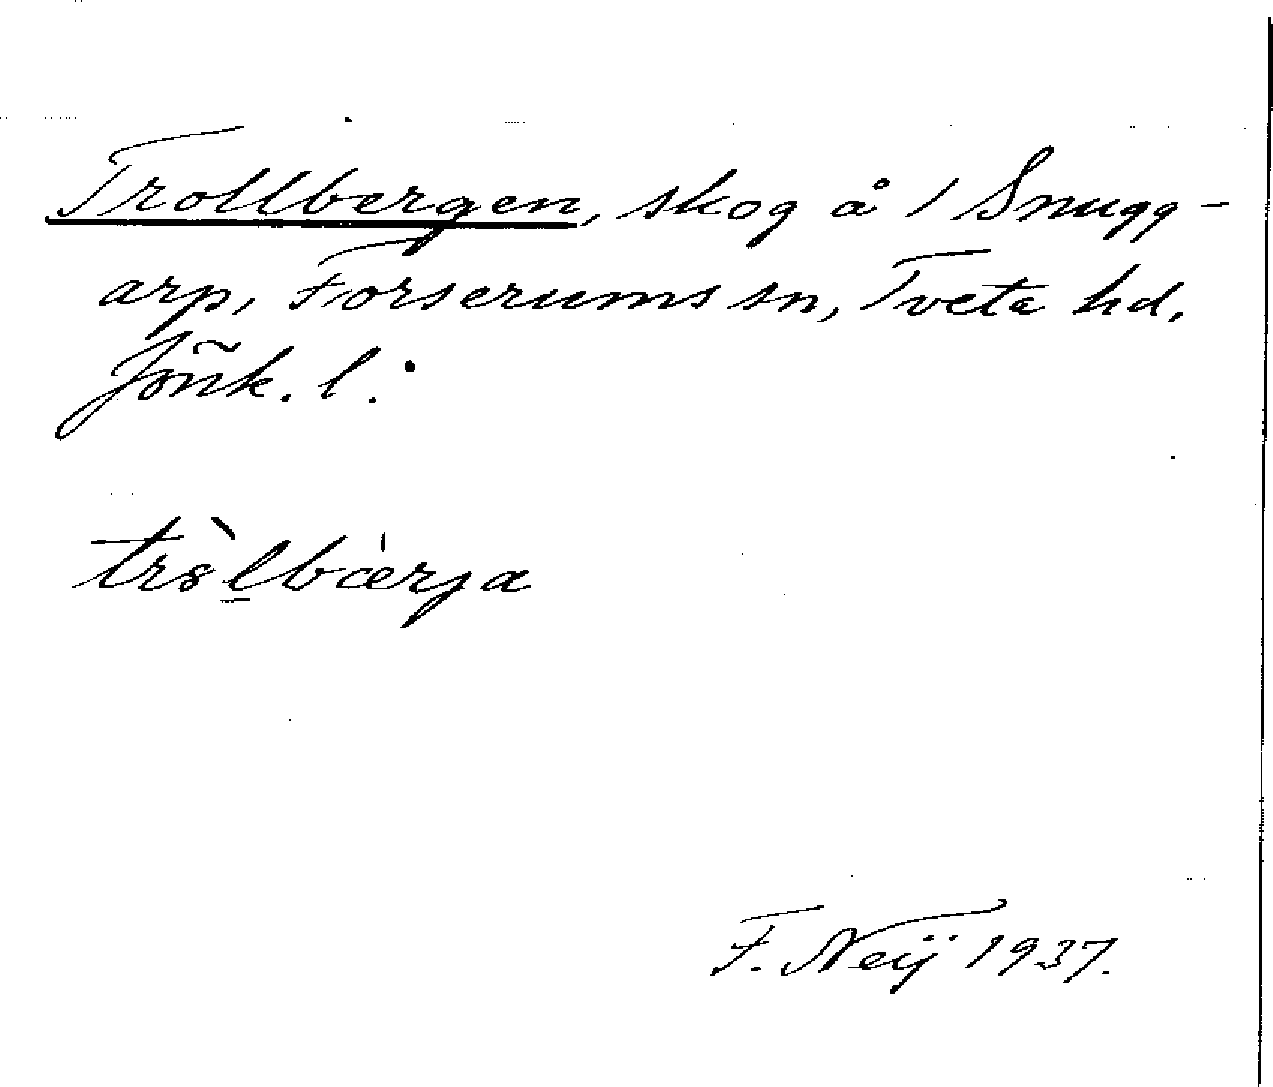 Trollbergen, skog å 1 Snugg-
arp, Forserums sn, Tveta hd,
Jönk. l.
F. Neij 1937.